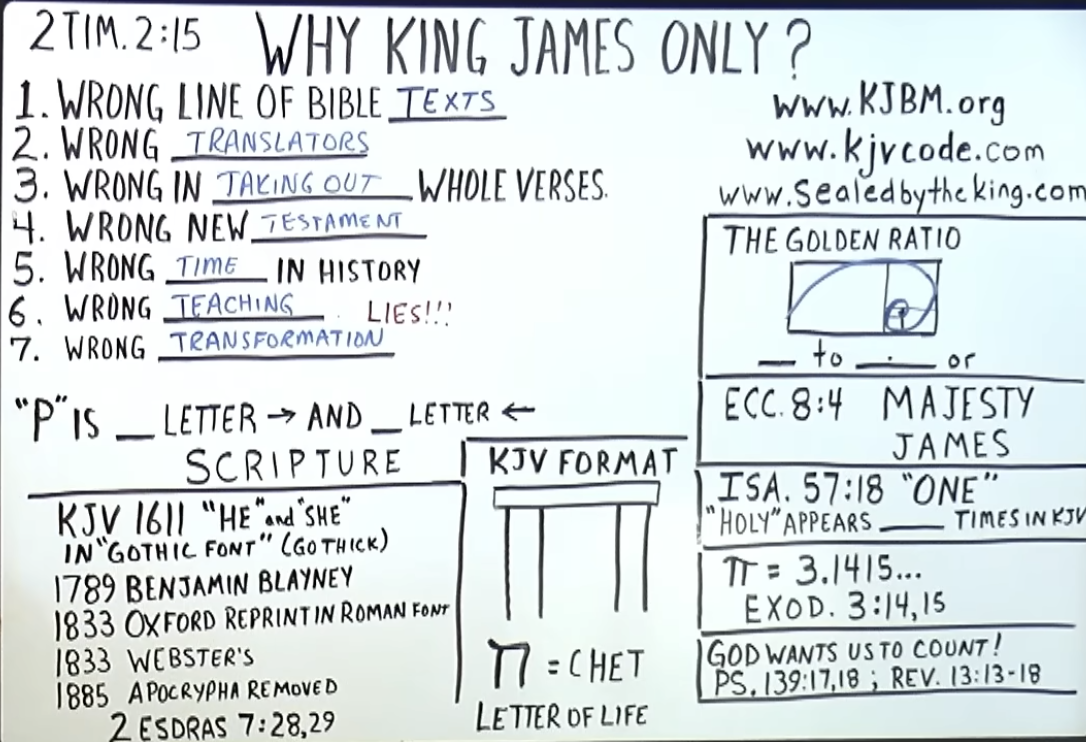 2 TIM. 2:15 WHY KING JAMES ONLY?
1. WRONG LINE OF BIBLE TEXTS
2. WRONG TRANSLATORS
3. WRONG IN TAKING OUT WHOLE VERSES.
4. WRONG NEW TESTAMENT
5. WRONG TIME IN HISTORY
6. WRONG TEACHING . LIES!!!
7. WRONG TRANSFORMATION
"P" IS __ LETTER → AND __ LETTER ←
SCRIPTURE
KJV 1611 "HE" and "SHE"
IN "GOTHIC FONT" (GOTHICK)
1789 BENJAMIN BLAYNEY
1833 OXFORD REPRINT IN ROMAN FONT
1833 WEBSTER'S
1885 APOCRYPHA REMOVED
2 ESDRAS 7:28,29
KJV FORMAT
= CHET
LETTER OF LIFE
www.KJBM.org
www.kjvcode.com
www.Sealedbytheking.com
THE GOLDEN RATIO
__ to __.__ or
ECC. 8:4 MAJESTY
JAMES
ISA. 57:18 "ONE"
"HOLY" APPEARS ____ TIMES IN KJV
π = 3.1415...
EXOD. 3:14,15
GOD WANTS US TO COUNT!
PS. 139:17,18 ; REV. 13:13-18